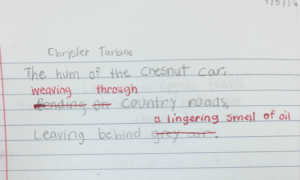 Chrysler Turbine
The hum of the chesnut car,
weaving through
country roads,
a lingering smell of oil
Leaving behind grey air.